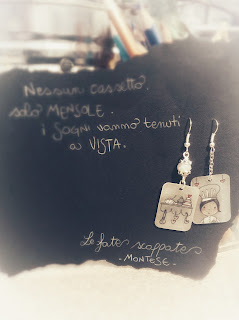 Nessun cassetto,
solo MENSOLE.
i sogni vanno tenuti
a VISTA.
Le fate scappate
- MONTESE -